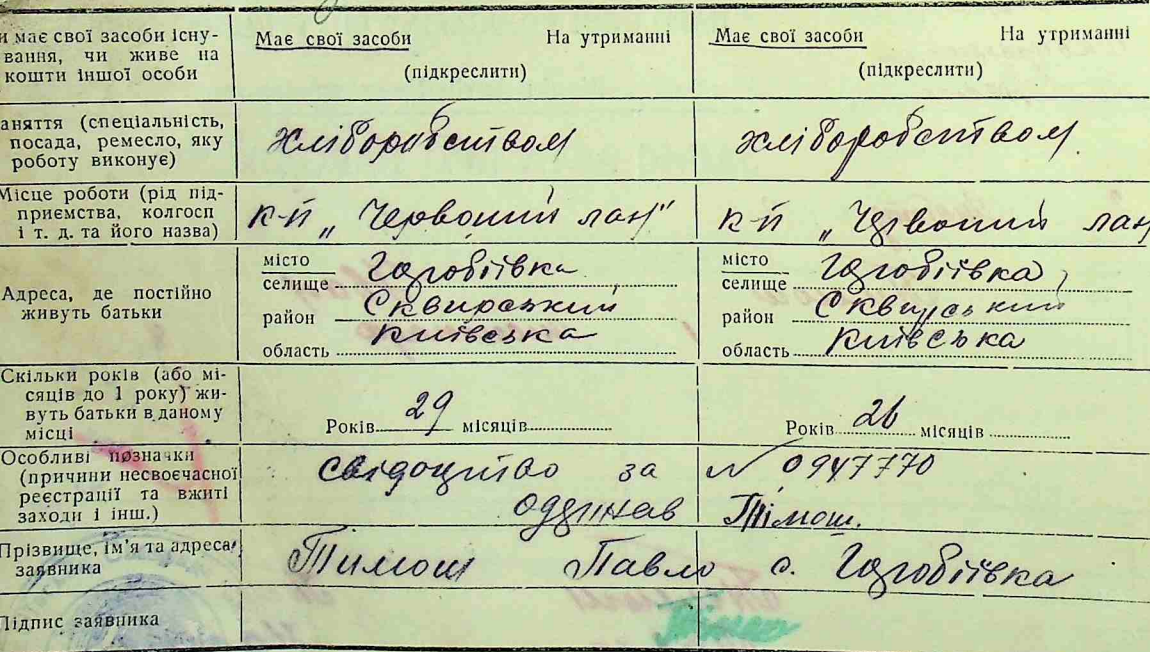 и має свої засоби існу-
вання, чи живе на
кошти іншої особи
Має свої засоби На утриманні
(підкреслити)
Має свої засоби На утриманні
(підкреслити)
аняття (спеціальність,
посада, ремесло, яку
роботу виконує)
хліборобством
хліборобством
Місце роботи (рід під-
приємства, колгосп
і т. д. та його назва)
к-п „Червоний лан"
к-п „Червоний лан
Адреса, де постійно
живуть батьки
місто
селище Горобіївка
район Сквирський
область Київська
місто
селище Горобіївка
район Сквирський
область Київська
Скільки років (або мі-
сяців до 1 року) жи-
вуть батьки в даному
місці
Років 29 місяців
Років 26 місяців
Особливі позначки
(причини несвоєчасної
реєстрації та вжиті
заходи і інш.)
свідоцтво за № 0947770
одержав Тімош.
Прізвище, ім'я та адреса
заявника
Тимош Павло с. Горобіївка
Підпис заявника